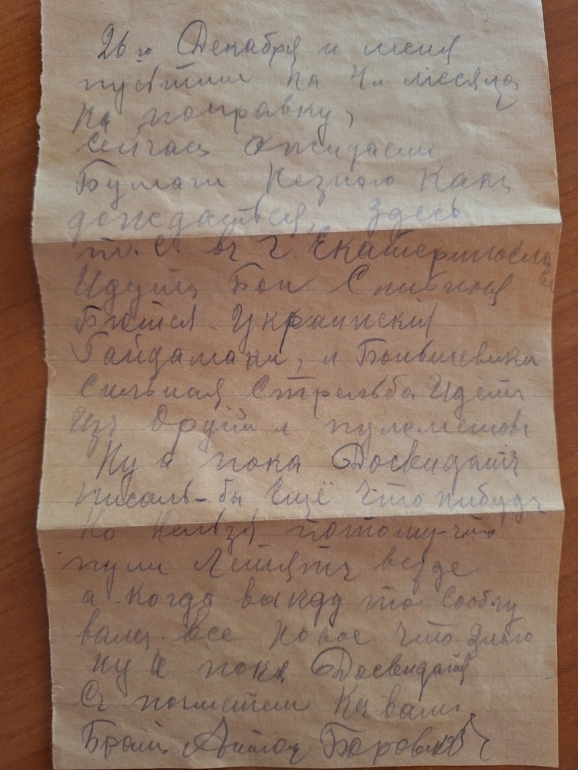 26го Декабря и меня
пустили на 4 месяца
на поправку,
сейчас ожидаем
Бумаги Незнаю Какъ
дождаться, здесь
т. е. въ г. Екатеринослав
Идутъ Бои Сильныя
Бьются Украинскія
Гайдамаки, и Большевики
Сильная Стрельба Идетъ
Изъ Орудій и пулеметовъ
Ну а пока Досвидатя
писалъ-бы ещё что нибудь
Но Нельзя потому-что
пули Летятъ везде
а когда выйду то сообщу
вамъ все новое что знаю
Ну а пока Досвидатя
Съ почтетем Къ вамъ
Братъ Антон Боровик